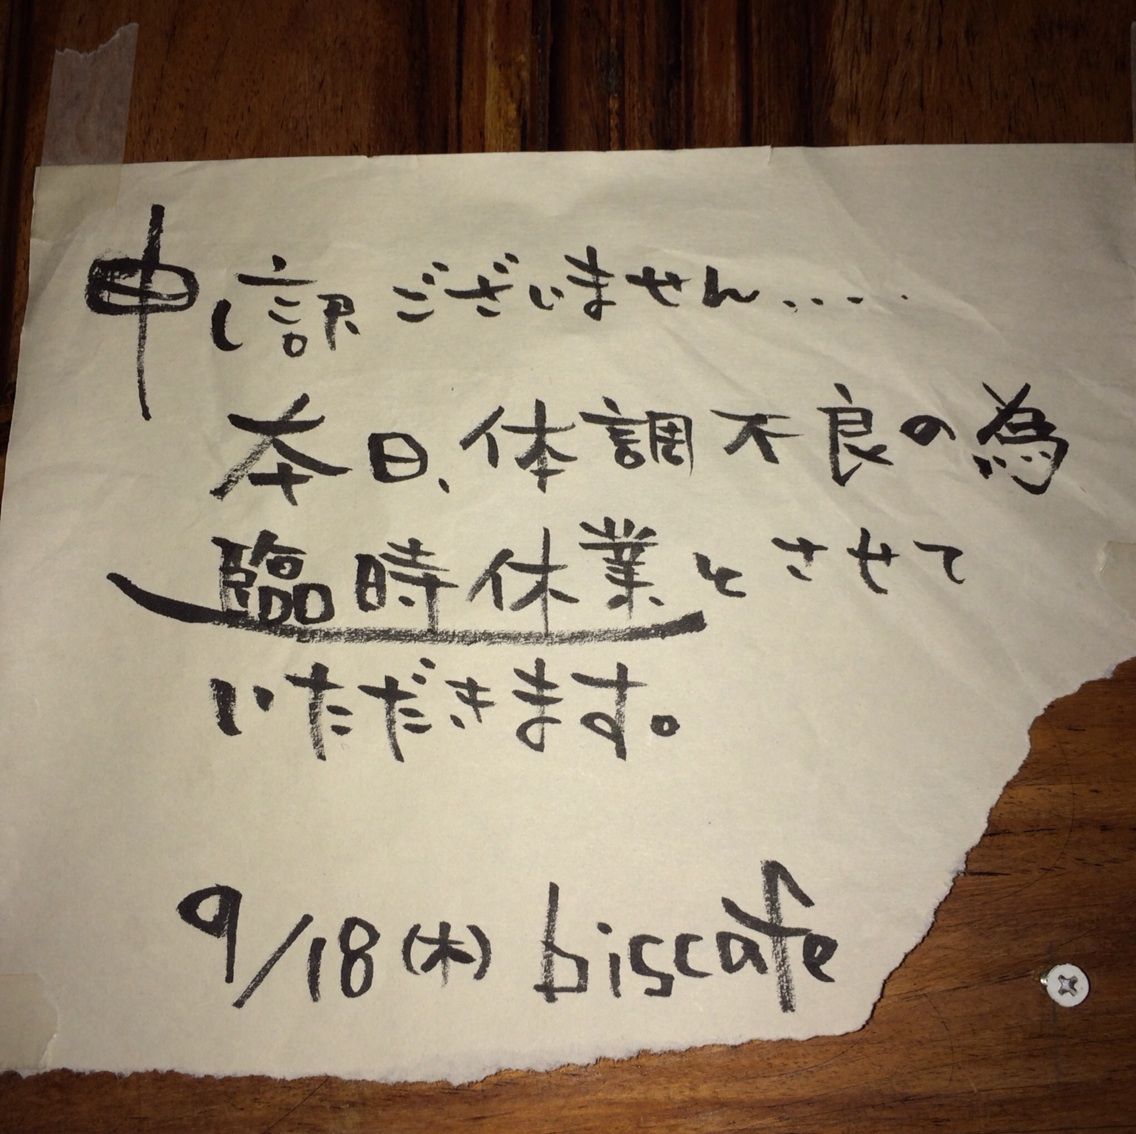 申し訳ございません.....
本日、体調不良の為
臨時休業とさせて
いただきます。
9/18(木) biscafe